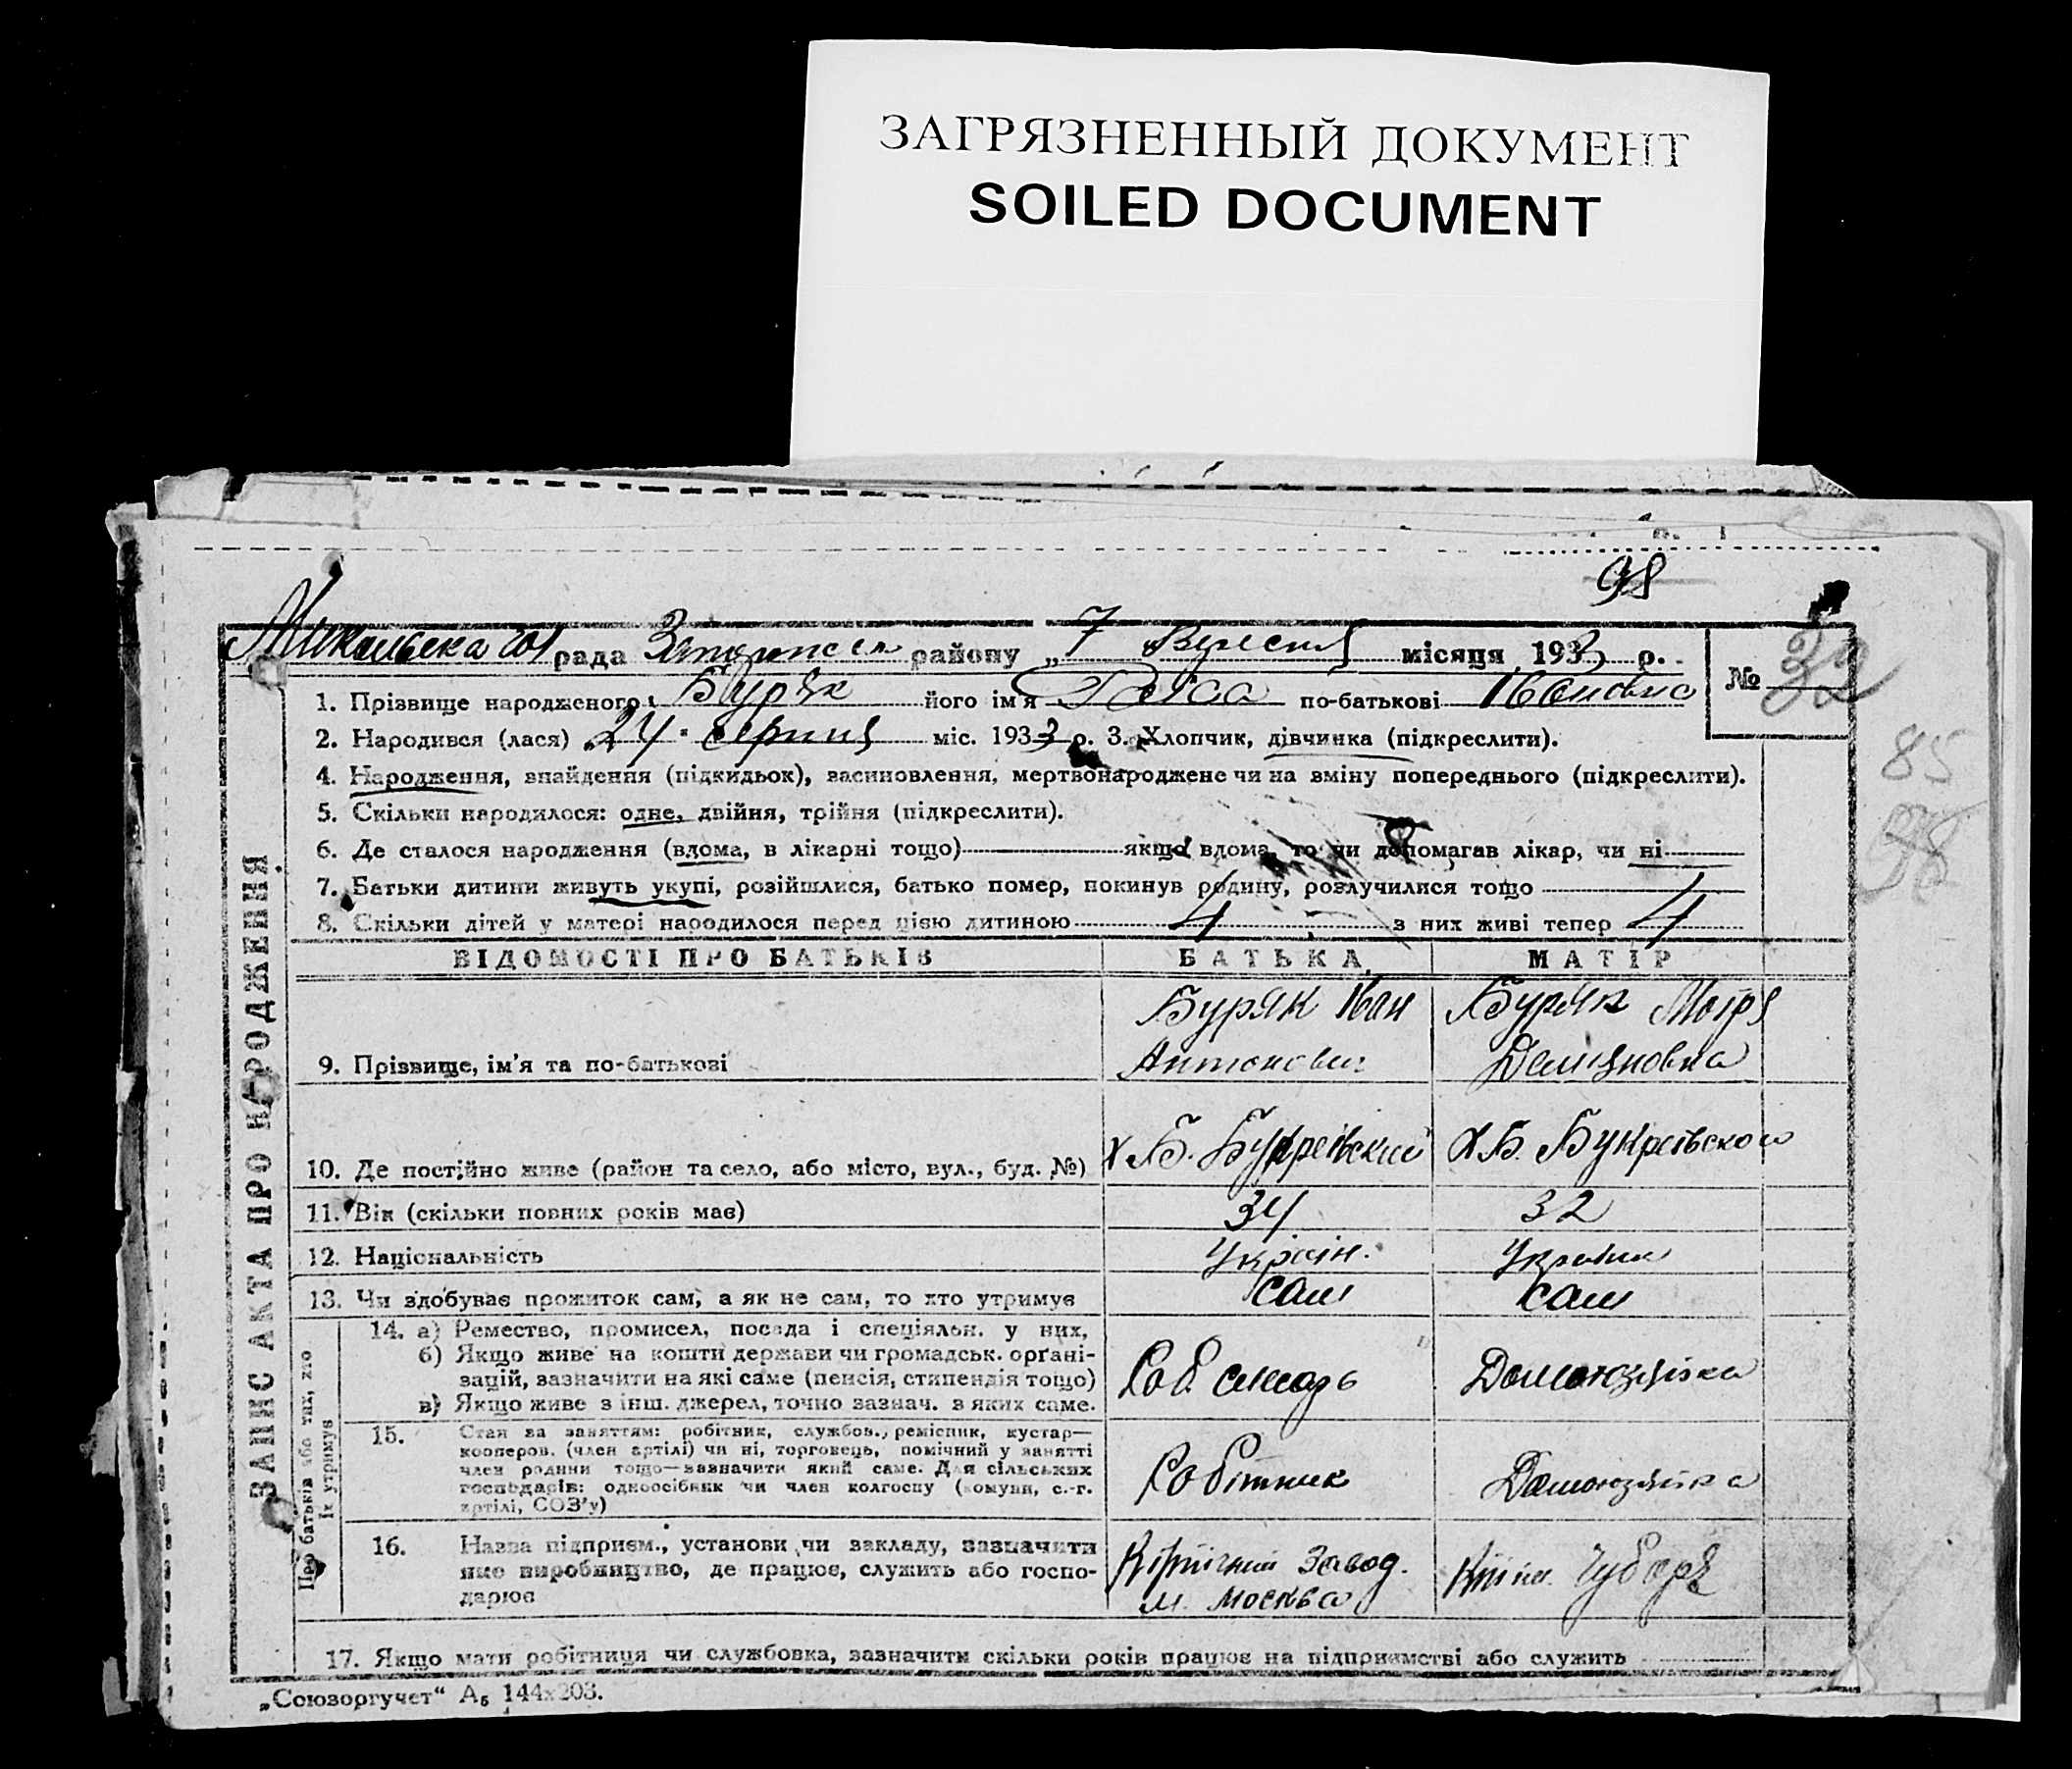 ЗАГРЯЗНЕННЫЙ ДОКУМЕНТ
SOILED DOCUMENT
98
рада району „7 Вересня місяця 1933 р.
№ 32
1. Прізвище народженого Буряк його ім'я Раїса по-батькові Івановна
2. Народився (лася) 24 серпня міс. 1933 р. 3. Хлопчик, дівчинка (підкреслити).
85
4. Народження, знайдення (підкидьок), засиновлення, мертвонароджене чи на зміну попереднього (підкреслити).
5. Скільки народилося: одне, двійня, трійня (підкреслити).
6. Де сталося народження (вдома, в лікарні тощо) якщо вдома, то чи допомагав лікар, чи ні
7. Батьки дитини живуть укупі, розійшлися, батько помер, покинув родину, розлучилися тощо
8. Скільки дітей у матері народилося перед цією дитиною 4 з них живі тепер 4
ЗАПИС АКТА ПРО НАРОДЖЕННЯ
ВІДОМОСТІ ПРО БАТЬКІВ БАТЬКА МАТІР
9. Прізвище, ім'я та по-батькові
Буряк Іван
Антонович
Буряк Мотря
Демяновна
10. Де постійно живе (район та село, або місто, вул., буд. №) х.Б. Букреївский х.Б. Букреївской
11. Вік (скільки повних років має) 34 32
12. Національність Україн. Українка
13. Чи здобуває прожиток сам, а як не сам, то хто утримує сам сам
Про батьків або тих, хто
їх утримує
14. а) Ремество, промисел, посада і спеціяльн. у них,
б) Якщо живе на кошти держави чи громадськ. орґані-
зацій, зазначити на які саме (пенсія, стипендія тощо)
в) Якщо живе з інш. джерел, точно зазнач. з яких саме.
Роб. Домохозяйка
15. Стан за заняттям: робітник, службов., ремісник, кустар—
кооперов. (член артілі) чи ні, торговець, помічний у занятті
член родини тощо—зазначити який саме. Для сільських
господарів: одноосібник чи член колгоспу (комуни, с.-г.
артілі, СОЗ'у)
Робітник Домохозяйка
16. Назва підприєм., установи чи закладу, зазначити
яке виробництво, де працює, служить або госпо-
дарює
Кірпічний Завод.
м. Москва
Чубаря
17. Якщо мати робітниця чи службовка, зазначити скільки років працює на підприємстві або служить
„Союзоргучет“ А₅ 144х203.